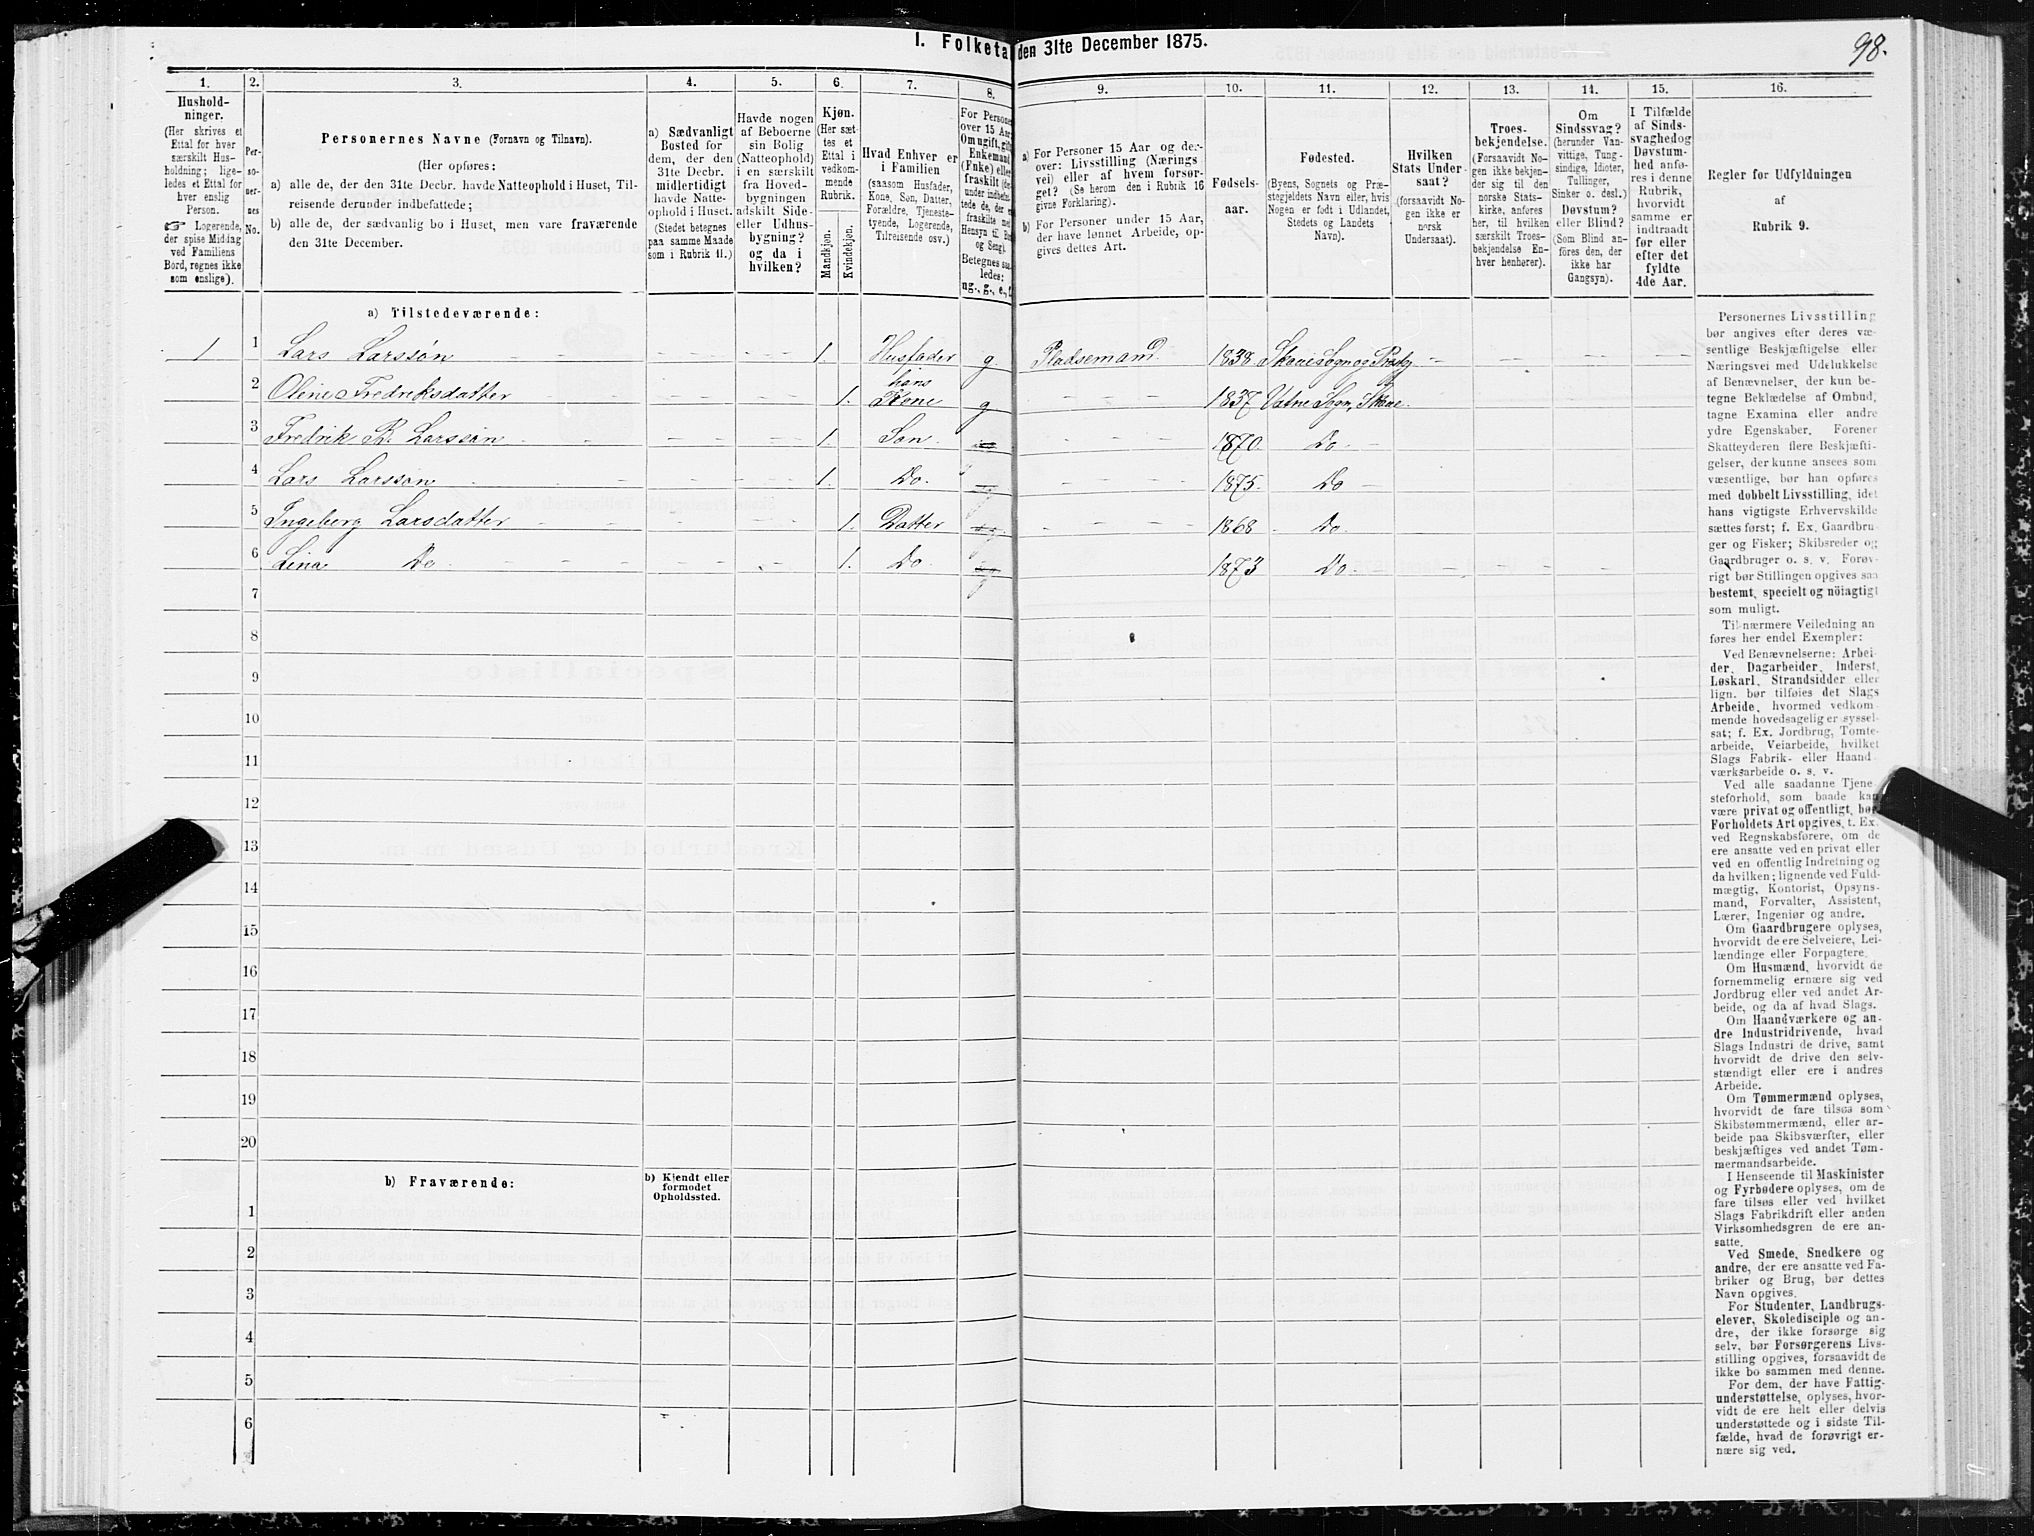 98.
I. Folketa den 31te December 1875.
1. 2. 3. 4. 5. 6. 7. 8. 9. 10. 11. 12. 13. 14. 15. 16.
Hushold-
ninger.
(Her skrives et
Ettal for hver
særskilt Hus-
holdning; lige-
ledes et Ettal for
hver enslig
Person.
☞ Logerende,
der spise Middag
ved Familiens
Bord, regnes ikke
som enslige).
Per-
so-
ner-
nes
No.
Personernes Navne (Fornavn og Tilnavn).
(Her opføres:
a) alle de, der den 31te Decbr. havde Natteophold i Huset, Til-
reisende derunder indbefattede;
b) alle de, der sædvanlig bo i Huset, men vare fraværende
den 31te December.
a) Sædvanligt
Bosted for
dem, der den
31te Decbr.
midlertidigt
havde Natte-
ophold i Huset.
(Stedet betegnes
paa samme Maade
som i Rubrik 11.)
Havde nogen
af Beboerne
sin Bolig
(Natteophold)
i en særskilt
fra Hoved-
bygningen
adskilt Side-
eller Udhus-
bygning?
og da i
hvilken?
Kjøn.
(Her sæt-
tes et
Ettal i
vedkom-
mende
Rubrik.
Mandkjøn.
Kvindekjøn.
Hvad Enhver er
i Familien
(saasom Husfader,
Kone, Søn, Datter,
Forældre, Tjeneste-
tyende, Logerende,
Tilreisende osv.)
For Personer
over 15 Aar
Om ugift, gift,
Enkemand
(Enke) eller
fraskilt
Betegnes saa-
ledes:
ug., g., e.,
a) For Personer 15 Aar og der-
over: Livsstilling (Nærings-
vei) eller af hvem forsør-
get? (Se herom den i Rubrik 16
givne Forklaring).
b) For Personer under 15 Aar,
der have lønnet Arbeide, op-
gives dettes Art.
Fødsels-
aar.
Fødested.
(Byens, Sognets og Præ-
stegjeldets Navn eller, hvis
Nogen er født i Udlandet,
Stedets og Landets
Navn).
Hvilken
Stats Under-
saat?
(forsaavidt No-
gen ikke er
norsk
Undersaat).
Troes-
bekjendelse.
(Forsaavidt No-
gen ikke bekjen-
der sig til den
norske Stats-
kirke, anføres
her, til hvilken
særskilt Troes-
bekjendelse En-
hver henhører).
Om
Sindssvag?
(herunder Van-
vittige, Tung-
sindige, Idioter,
Tullinger,
Sinker o. desl.)
Døvstum?
eller Blind?
(Som Blind an-
føres den, der
ikke har
Gangsyn).
I Tilfælde
af Sinds-
svaghed og
Døvstum-
hed anfø-
res i denne
Rubrik,
hvorvidt
samme er
indtraadt
før eller
efter det
fyldte
4de Aar.
Regler for Udfyldningen
af
Rubrik 9.
a) Tilstedeværende:
1 1 Lars Larssøn 1. Husfader g Pladsemand 1838 Skouesogn og Prstgj
2 Oline Fredriksdatter 1. hans Kone g 1837 Vatne Sogn, Skoue.
3 Fredrik B. Larssøn 1. Søn. 1870. Do
4 Lars Larssøn 1. Do. 1875. Do
5 Ingeberg Larsdatter 1. Datter 1868 Do.
6 Lina Do 1. Do. 1873 Do.
7
8
9
10
11
12
13
14
15
16
17
18
19
20
b) Fraværende:
b) Kjendt eller
formodet
Opholdssted.
1
2
3
4
5
6
Personernes Livsstilling
bør angives efter deres væ-
sentlige Beskjæftigelse eller
Næringsvei med Udelukkelse
af Benævnelser, der kun be-
tegne Beklædelse af Ombud,
tagne Examina eller andre
ydre Egenskaber. Forener
Skatteyderen flere Beskjæfti-
gelser, der kunne ansees som
væsentlige, bør han opføres
med dobbelt Livsstilling, idet
hans vigtigste Erhvervskilde
sættes først; f. Ex. Gaardbru-
ger og Fisker; Skibsreder og
Gaardbruger o. s. v. Forøv-
rigt bør Stillingen opgives saa
bestemt, specielt og nöiagtigt
som muligt.
Til nærmere Veiledning an
føres her endel Exempler:
Ved Benævnelserne: Arbei-
der, Dagarbeider, Inderst,
Løskarl, Strandsidder eller
lign. bør tilføies det Slags
Arbeide, hvormed vedkom-
mende hovedsagelig er syssel-
sat; f. Ex. Jordbrug, Tomte-
arbeide, Veiarbeide, hvilket
Slags Fabrik- eller Haand
værksarbeide o. s. v.
Ved alle saadanne Tjene
steforhold, som baade kan
være privat og offentligt, bør
Forholdets Art opgives, t. Ex.
ved Regnskabsførere, om de
ere ansatte ved en privat eller
ved en offentlig Indretning og
da hvilken; lignende ved Fuld-
mægtig, Kontorist, Opsyns-
mand, Forvalter, Assistent,
Lærer, Ingeniør og andre.
Om Gaardbrugere oplyses,
hvorvidt de ere Selveiere, Lei-
lændinge eller Forpagtere.
Om Husmænd, hvorvidt de
fornemmelig ernære sig ved
Jordbrug eller ved andet Ar-
beide, og da af hvad Slags.
Om Haandværkere og an-
dre Industridrivende, hvad
Slags Industri de drive, samt
hvorvidt de drive den selv-
stændigt eller ere i andres
Arbeide.
Om Tømmermænd oplyses,
hvorvidt de fare tilsøs som
Skibstømmermænd, eller ar-
beide paa Skibsværfter, eller
beskjæftiges ved andet Tøm-
mermandsarbeide.
I Henseende til Maskinister
og Fyrbødere oplyses, om de
fare tilsøs eller ved hvilket
Slags Fabrikdrift eller anden
Virksomhedsgren de ere an-
satte.
Ved Smede, Snedkere og
andre, der ere ansatte ved Fa-
briker og Brug, bør dettes
Navn opgives.
For Studenter, Landbrugs-
elever, Skoledisciple og an-
dre, der ikke forsørge sig
selv, bør Forsørgerens Livs-
stilling opgives, forsaavidt de
ikke bo sammen med denne.
For dem, der have Fattig-
understøttelse, oplyses, hvor-
vidt de ere helt eller delvis
understøttede og i sidste Til-
fælde, hvad de forøvrigt er-
nære sig ved.